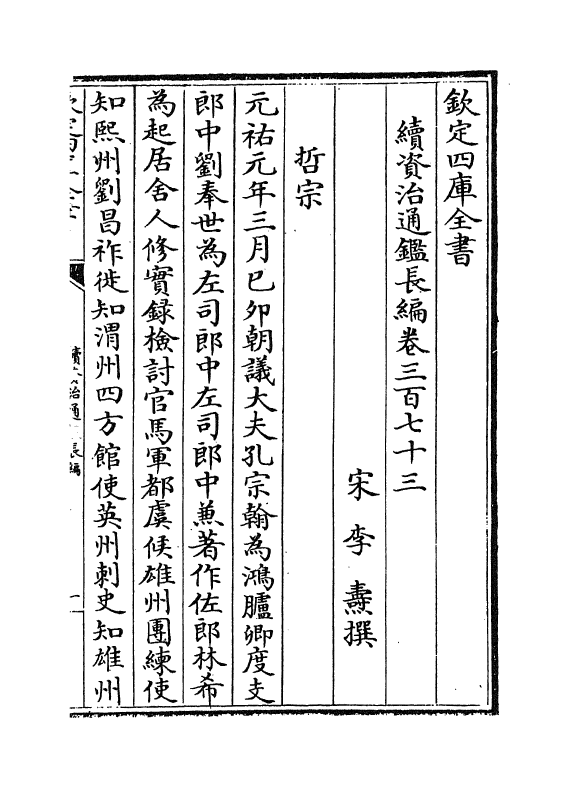 欽定四庫全書
續資治通鑑長編卷三百七十三
宋 李 燾 撰
哲宗
元祐元年三月己卯朝議大夫孔宗翰為鴻臚卿度支
郎中劉奉世為左司郎中左司郎中兼著作佐郎林希
為起居舍人修實錄檢討官馬軍都虞候雄州團練使
知熙州劉昌祚徙知渭州四方館使英州刺史知雄州